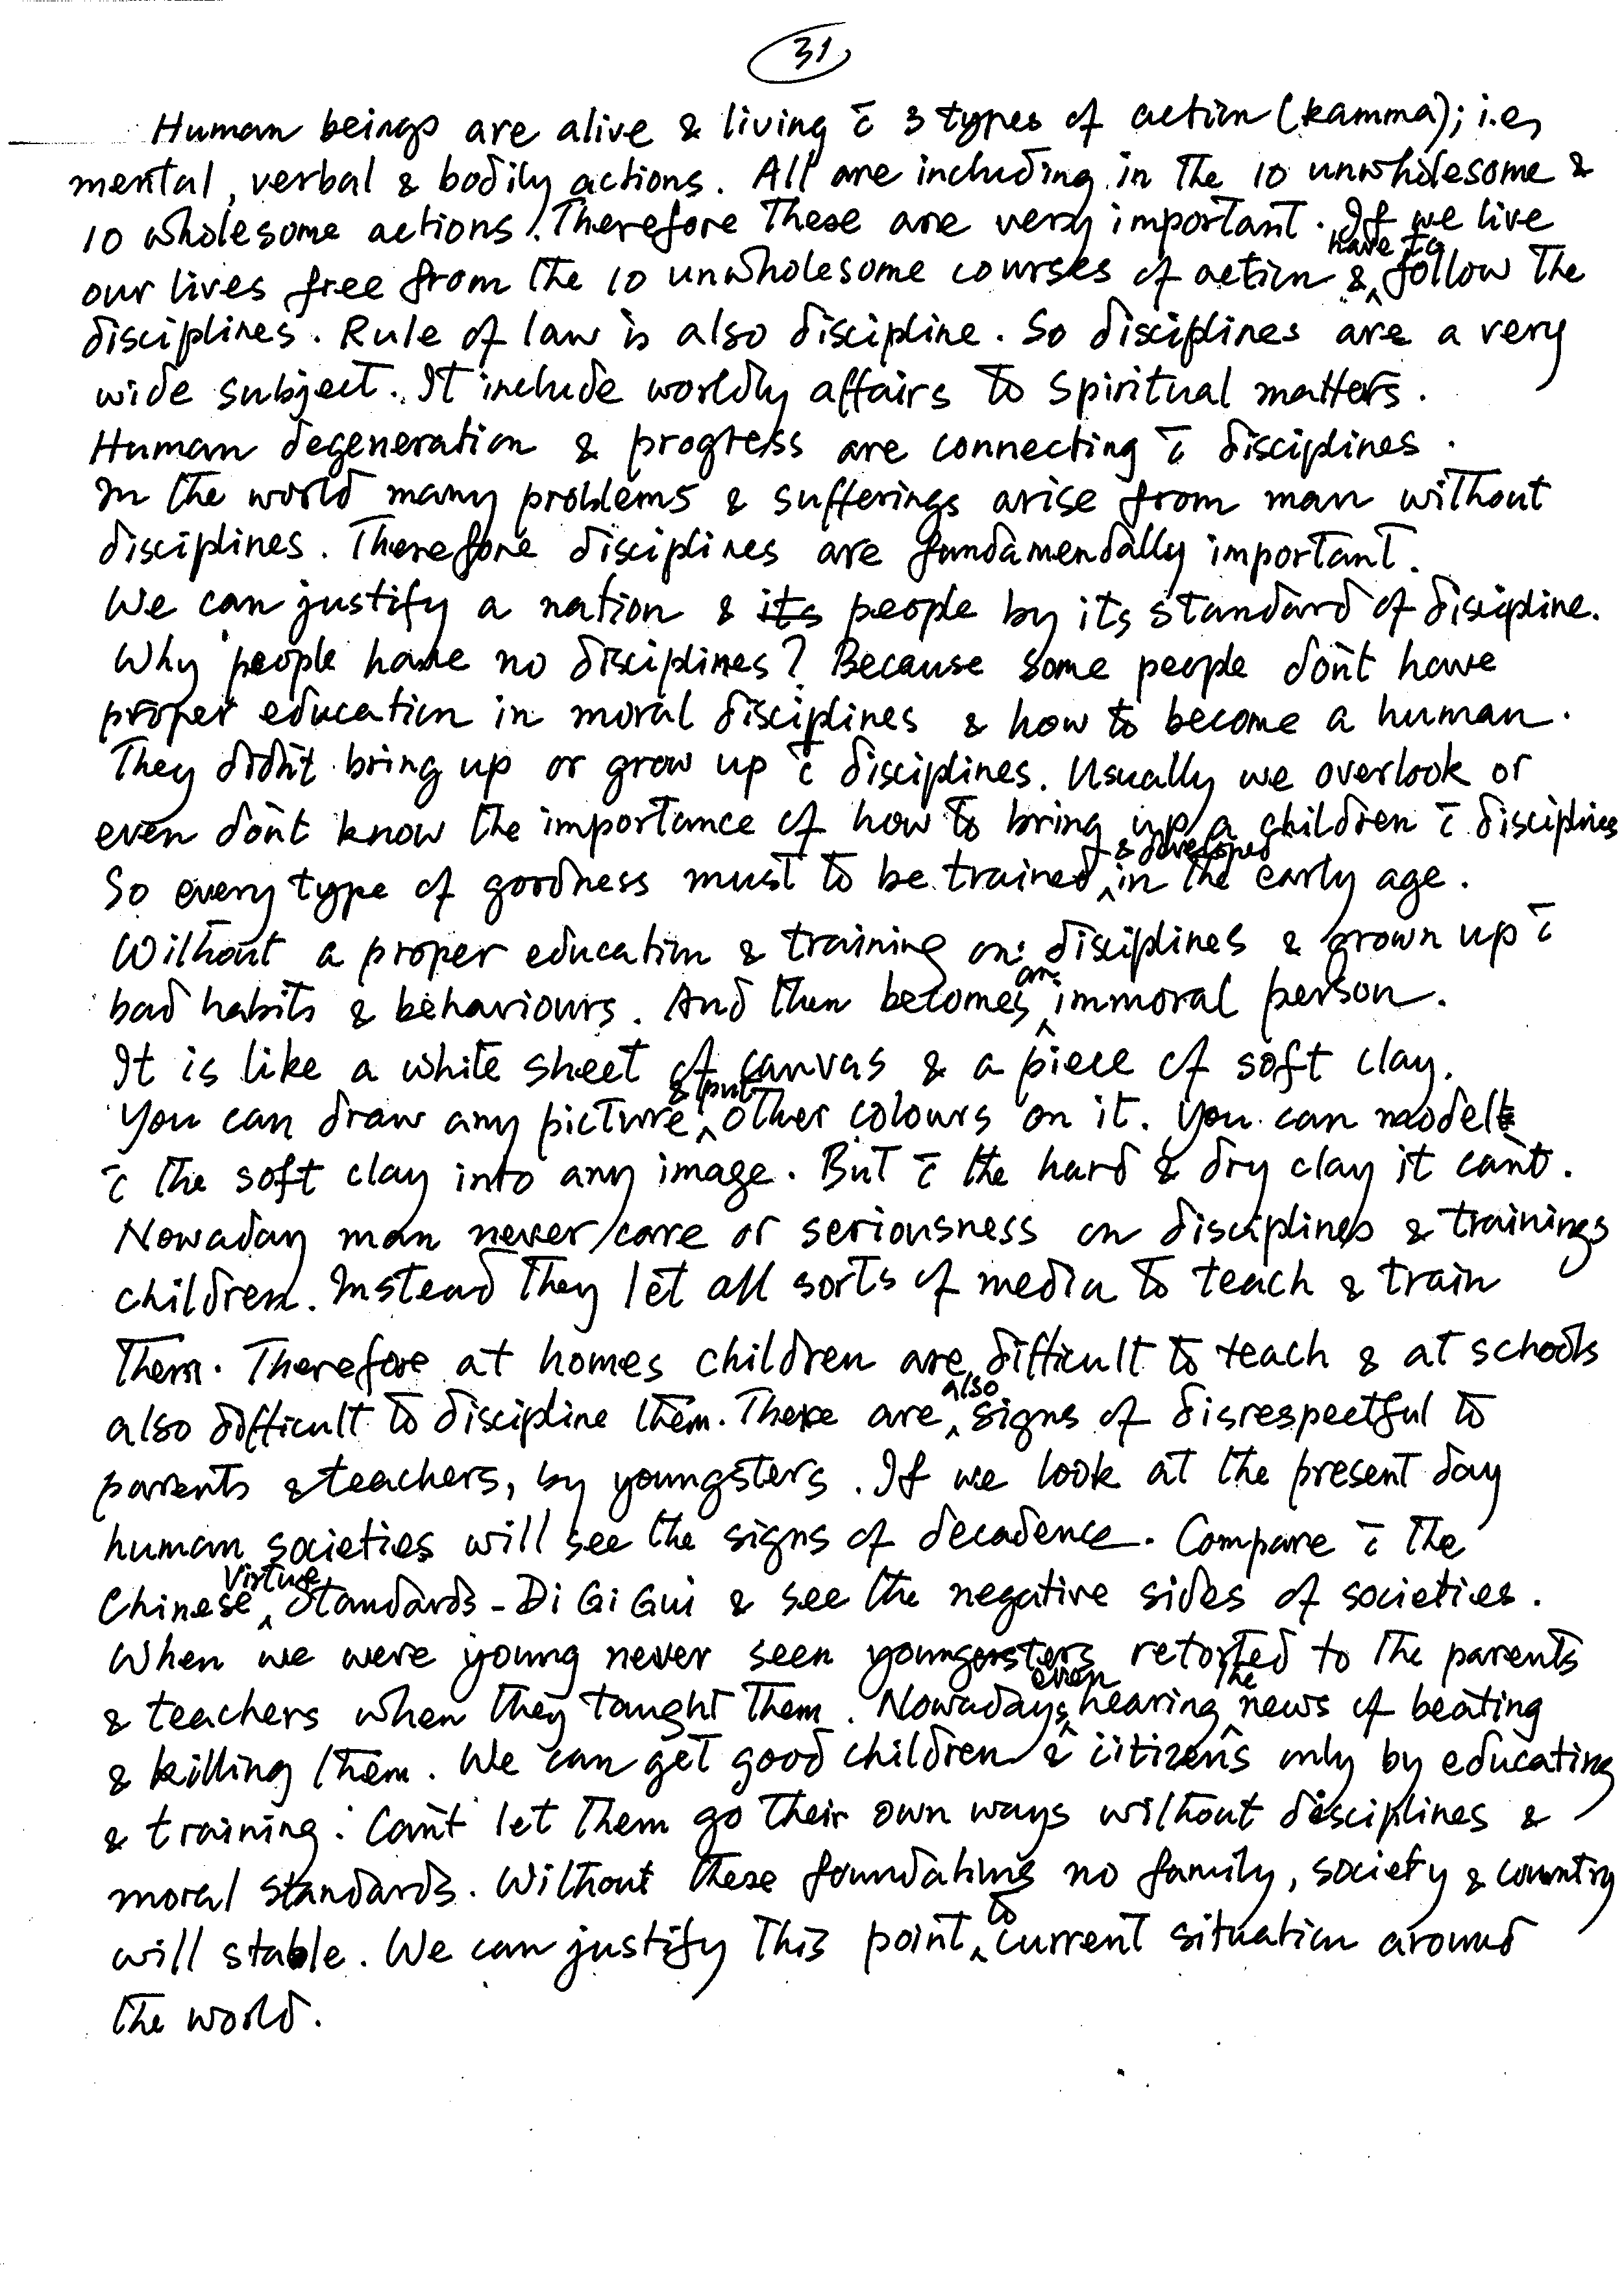 31
Human beings are alive & living c̄ 3 types of action (kamma); i.e,
mental, verbal & bodily actions. All are including in the 10 unwholesome &
10 wholesome actions. Therefore these are very important. If we live
our lives free from the 10 unwholesome courses of action & have to follow the
disciplines. Rule of law is also discipline. So disciplines are a very
wide subject. It include worldly affairs to spiritual matters.
Human degeneration & progress are connecting c̄ disciplines.
In the world many problems & sufferings arise from man without
disciplines. Therefore disciplines are fundamendally important.
We can justify a nation & its people by its standard of discipline.
Why people have no disciplines? Because some people don't have
proper education in moral disciplines & how to become a human.
They didn't bring up or grow up c̄ disciplines. Usually we overlook or
even don't know the importance of how to bring up a children c̄ disciplines
So every type of goodness must to be trained & developed in the early age.
Without a proper education & training on disciplines & grown up c̄
bad habits & behaviours. And then becomes an immoral person.
It is like a white sheet of canvas & a piece of soft clay.
You can draw any picture & put other colours on it. You can model
c̄ the soft clay into any image. But c̄ the hard & dry clay it can't.
Nowaday man never care or seriousness on disciplines & trainings
children. Instead they let all sorts of media to teach & train
them. Therefore at homes children are difficult to teach & at schools
also difficult to discipline them. There are also signs of disrespectful to
parents & teachers, by youngsters. If we look at the present day
human societies will see the signs of decadence. Compare c̄ the
Chinese virtue standards - Di Gi Gui & see the negative sides of societies.
When we were young never seen youngersters retorted to the parents
& teachers when they taught them. Nowadays even hearing the news of beating
& killing them. We can get good children & citizens only by educating
& training. Can't let them go their own ways without disciplines &
moral standards. Without these foundations no family, society & country
will stable. We can justify this point to current situation around
the world.